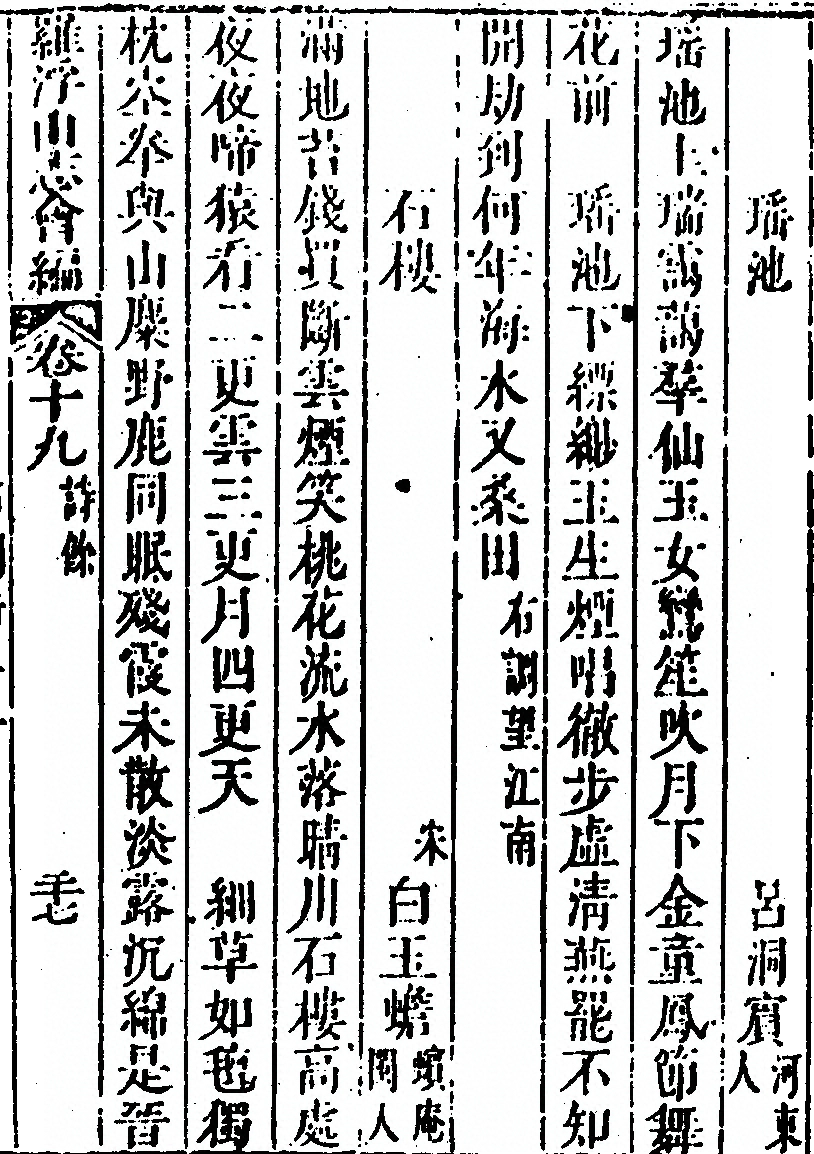 瑤池 呂洞賓河東人
瑤池上瑞藹藹羣仙玉女鸞笙吹月下金童鳳節舞
花前 瑤池下縹緲玉生煙唱徹步虛清燕罷不知
開劫到何年海水又桑田右調望江南
石樓 宋白玉蟾蠙庵閩人
滿地苔錢買斷雲煙笑桃花流水落晴川石樓高處
夜夜啼猿看二更雲三更月四更天 細草如毡獨
枕空拳與山麋野鹿同眠殘霞未散淡露沉綿是晉
羅浮山志會編 卷十九詩餘